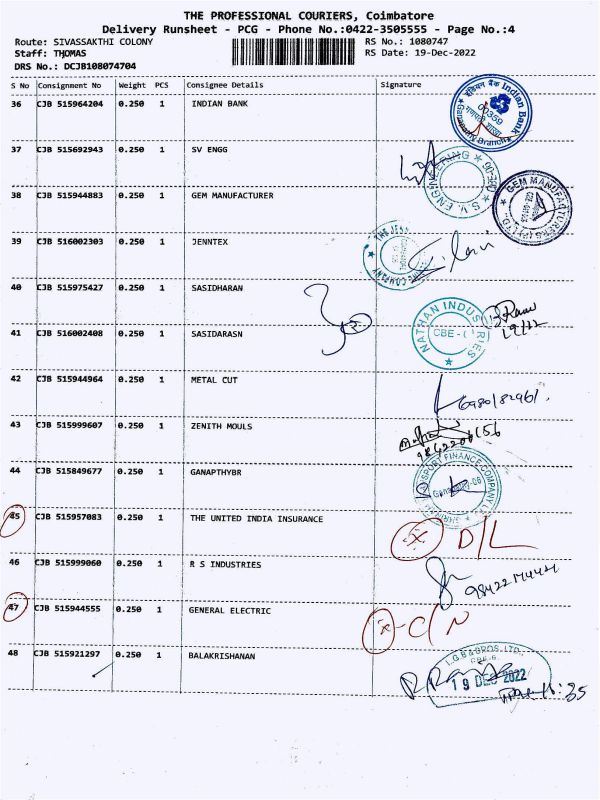 THE PROFESSIONAL COURIERS, Coimbatore
Delivery Runsheet - PCG - Phone No.:0422-3505555 - Page No.:4
Route: SIVASSAKTHI COLONY RS No.: 1080747
Staff: THOMAS RS Date: 19-Dec-2022
DRS No.: DCJB108074704
S No Consignment No Weight PCS Consignee Details Signature
36 CJB 515964204 0.250 1 INDIAN BANK
इंडियन बैंक Indian Bank
00359
Branch
37 CJB 515692943 0.250 1 SV ENGG
S.V. ENGINEERING
38 CJB 515944883 0.250 1 GEM MANUFACTURER
GEM MANUFACTURERS (P) LTD.
39 CJB 516002303 0.250 1 JENNTEX
40 CJB 515975427 0.250 1 SASIDHARAN
NATHAN INDUSTRIES
CBE-
41 CJB 516002408 0.250 1 SASIDARASN
19/12
42 CJB 515944964 0.250 1 METAL CUT
43 CJB 515999607 0.250 1 ZENITH MOULS
44 CJB 515849677 0.250 1 GANAPTHYBR
FINANCE COMPANY
45 CJB 515957083 0.250 1 THE UNITED INDIA INSURANCE
x D/L
46 CJB 515999060 0.250 1 R S INDUSTRIES
47 CJB 515944555 0.250 1 GENERAL ELECTRIC
x - C/N
48 CJB 515921297 0.250 1 BALAKRISHANAN
L.G.B & BROS. LTD.,
CBE-6.
19 DEC 2022